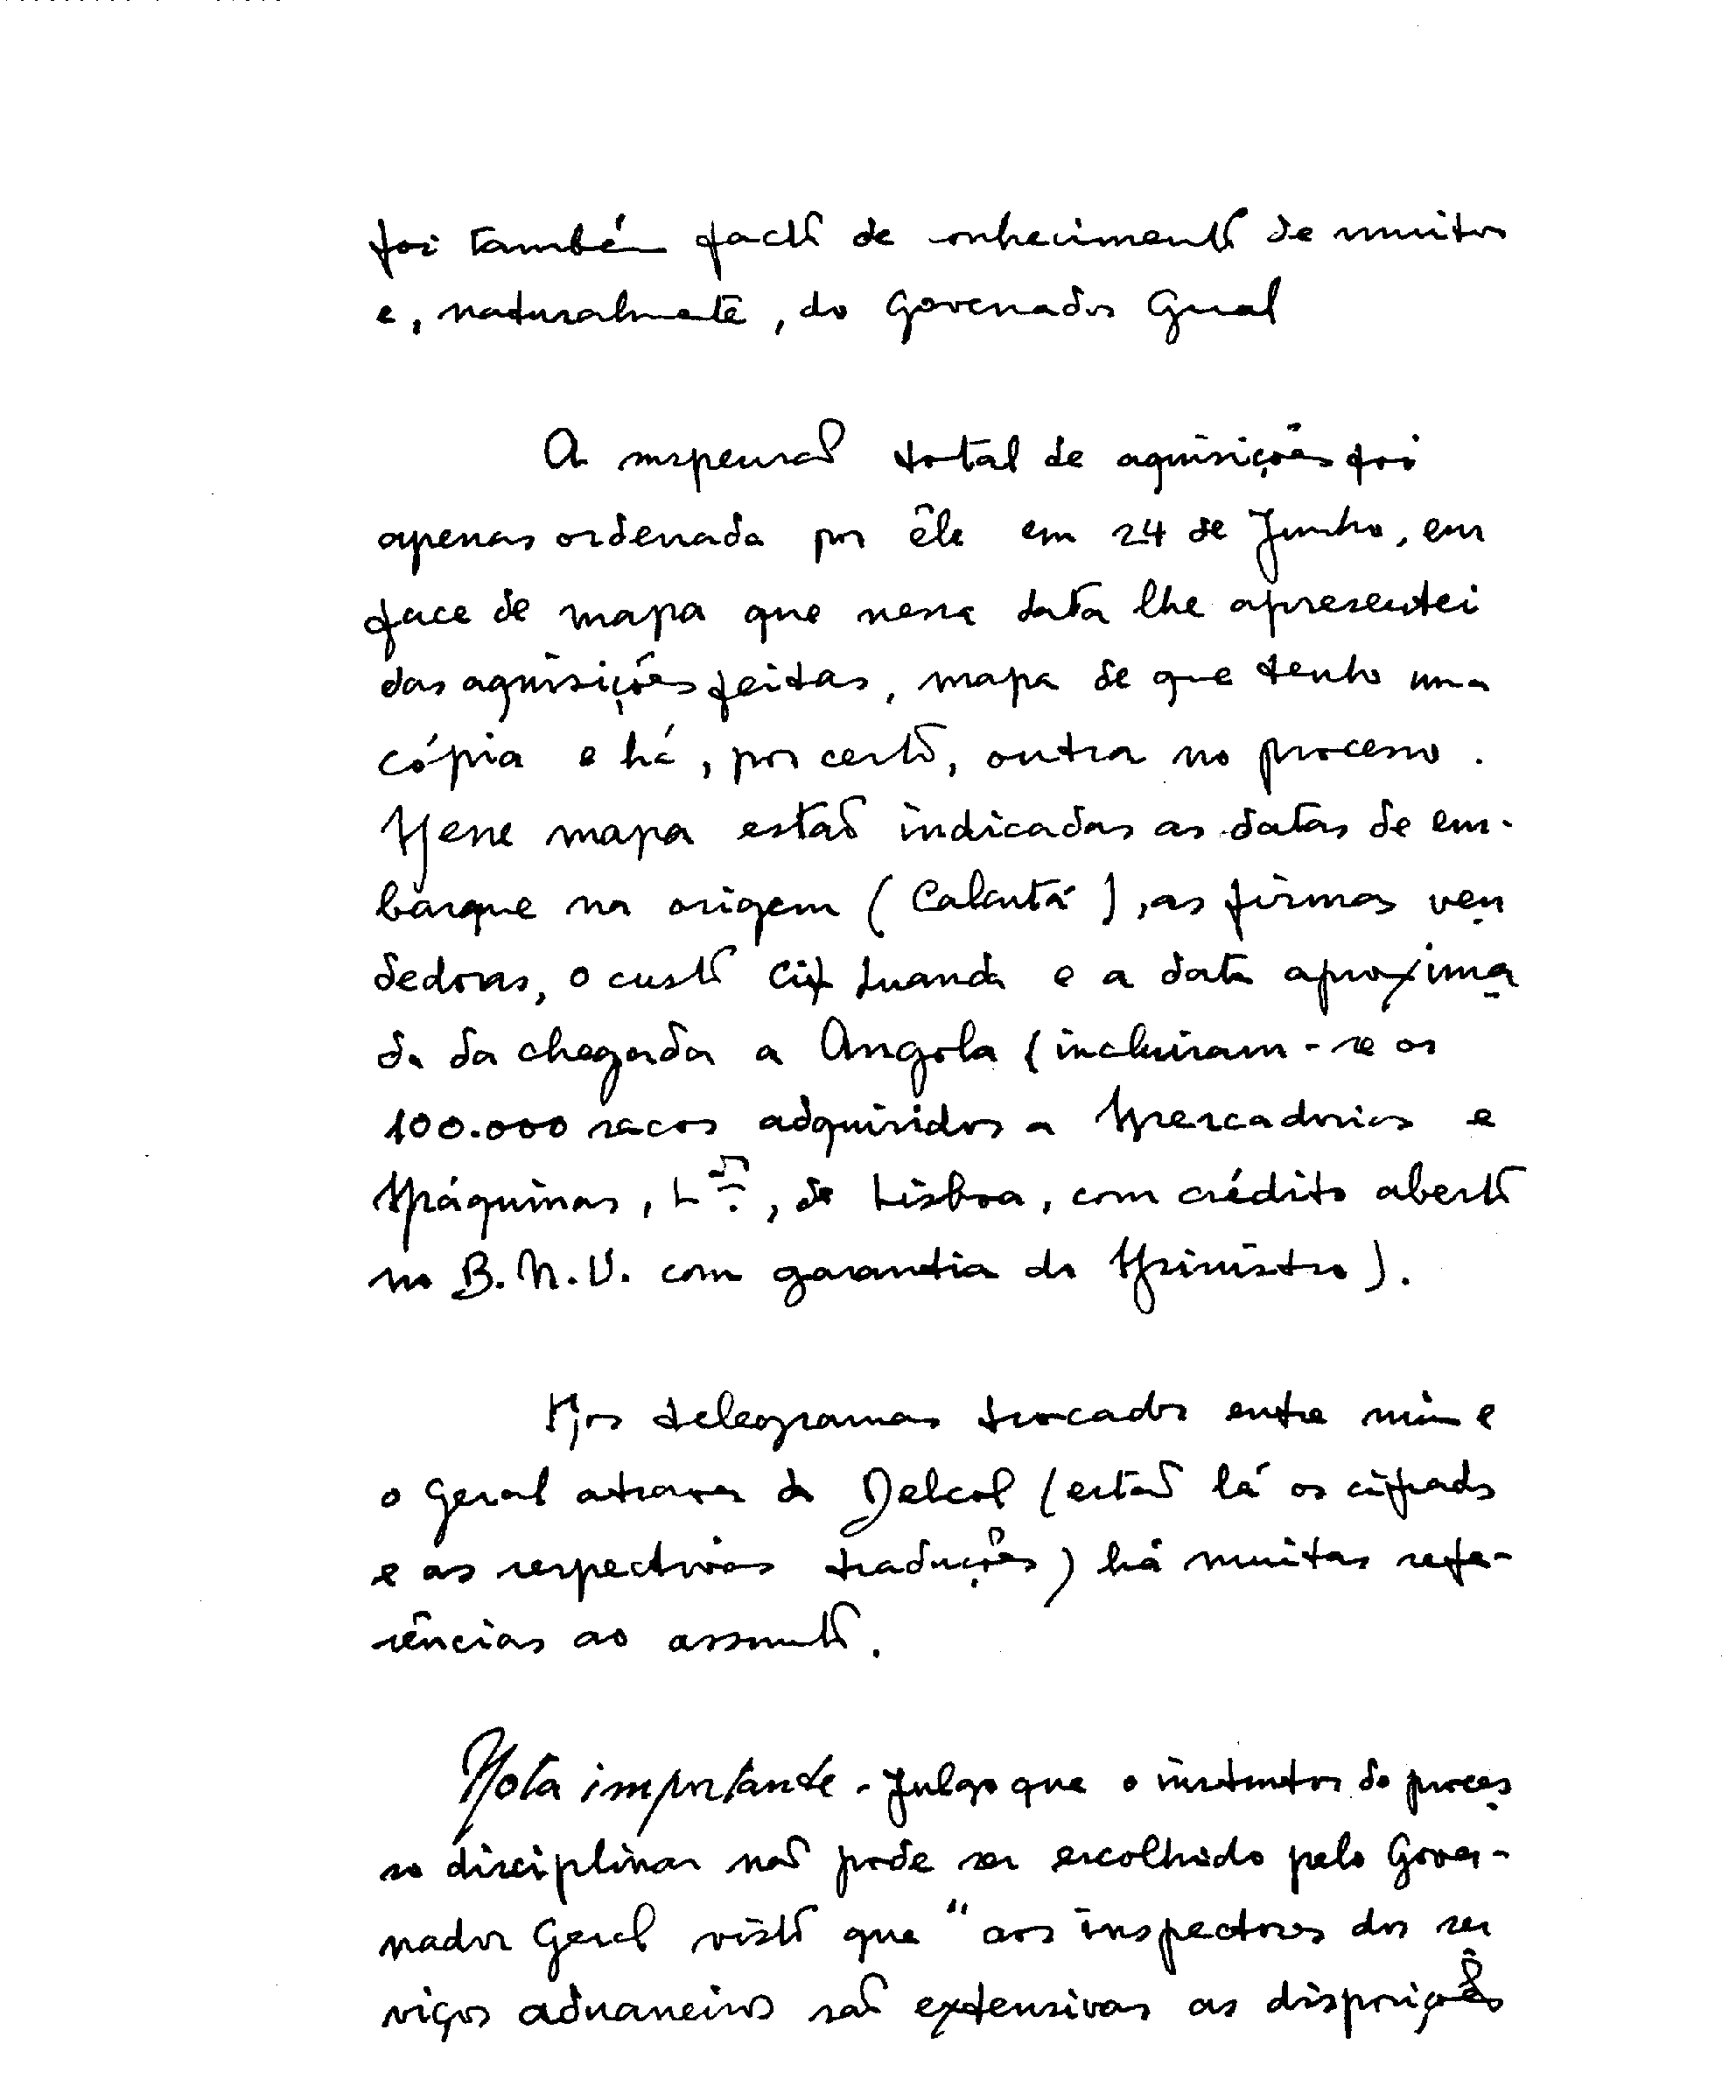 foi também facto de conhecimento de muitos
e, naturalmente, do Governador Geral
A suspensão total de aquisições foi
apenas ordenada por êle em 24 de Junho, em
face de mapa que nessa data lhe apresentei
das aquisições feitas, mapa de que tenho uma
cópia e há, por certo, outra no processo.
Nesse mapa estão indicadas as datas de em-
barque na origem (Calcutá), as firmas ven
dedoras, o custo Cif Luanda e a data aproxima
da da chegada a Angola (incluiram-se os
100.000 sacos adquiridos a Mercadorias e
Máquinas, L.da, de Lisboa, com crédito aberto
no B.N.U. com garantia do Ministro).
Nos telegramas trocados entre mim e
o Geral atraves da Delcol (estão lá os cifrados
e as respectivas traduções) há muitas refe-
rências ao assunto.
Nota importante - Julgo que o instrutor do proces
so disciplinar não pode ser escolhido pelo Gover-
nador Geral visto que "aos inspectores dos ser
viços aduaneiros são extensivas as disposições